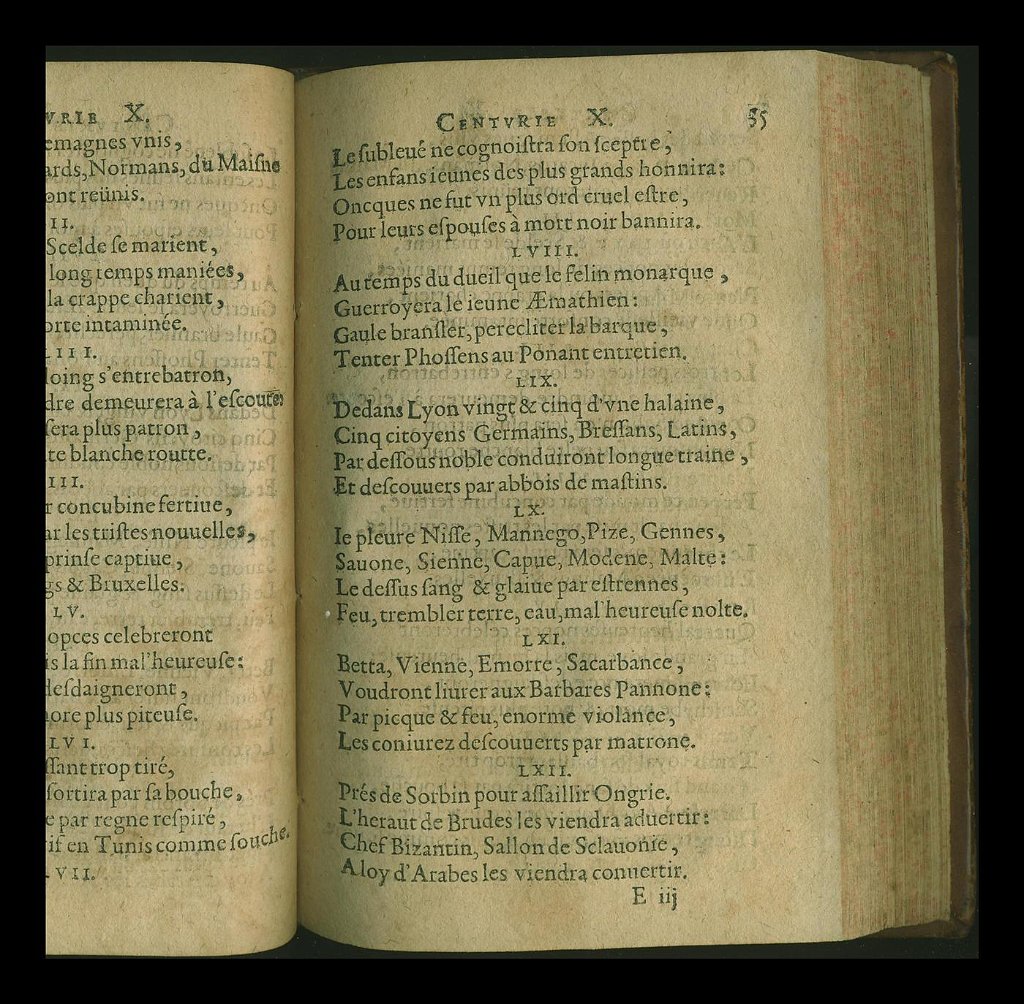 VRIE X.
emagnes vnis,
ards, Normans, du Maiſne
ont reünis.
II.
Scelde ſe marient,
long temps maniées,
la crappe charient,
orte intaminée.
LIII.
loing s'entrebatron,
dre demeurera à l'eſcoute:
ſera plus patron,
te blanche routte.
IIII.
r concubine fertiue,
ar les triſtes nouuelles,
prinſe captiue,
gs & Bruxelles.
LV.
opces celebreront
is la fin mal'heureuſe:
deſdaigneront,
ore plus piteuſe.
LVI.
ſſant trop tiré,
ſortira par ſa bouche,
e par regne reſpiré,
if en Tunis comme ſouche.
VII.
CENTVRIE X. 55
Le ſubleué ne cognoiſtra ſon ſceptre,
Les enfans ieunes des plus grands honnira:
Oncques ne fut vn plus ord cruel eſtre,
Pour leurs eſpouſes à mort noir bannira.
LVIII.
Au temps du dueil que le felin monarque,
Guerroyera le ieune Æmathien:
Gaule branſler, perecliter la barque,
Tenter Phoſſens au Ponant entretien.
LIX.
Dedans Lyon vingt & cinq d'vne halaine,
Cinq citoyens Germains, Breſſans, Latins,
Par deſſous noble conduiront longue traine,
Et deſcouuers par abbois de maſtins.
LX.
Ie pleure Niſſe, Mannego, Pize, Gennes,
Sauone, Sienne, Capue, Modene, Malte:
Le deſſus ſang & glaiue par eſtrennes,
Feu, trembler terre, eau, mal'heureuſe nolte.
LXI.
Betta, Vienne, Emorre, Sacarbance,
Voudront liurer aux Barbares Pannone:
Par picque & feu, enorme violance,
Les coniurez deſcouuerts par matrone.
LXII.
Prés de Sorbin pour aſſaillir Ongrie.
L'heraut de Brudes les viendra aduertir:
Chef Bizantin, Sallon de Sclauonie,
A loy d'Arabes les viendra conuertir.
E iij